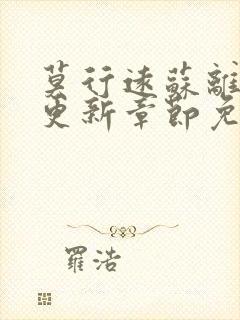 莫行遠蘇離
更新章節免
羅浩